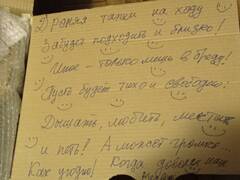 Драная тапки на ходу
Забудь подходить и близко!
Ише - только лишь в бреду!
Пусть будет тихо и свободно!
Дышать, любить, мечтать
и петь! А может громко...
Как угодно! Когда